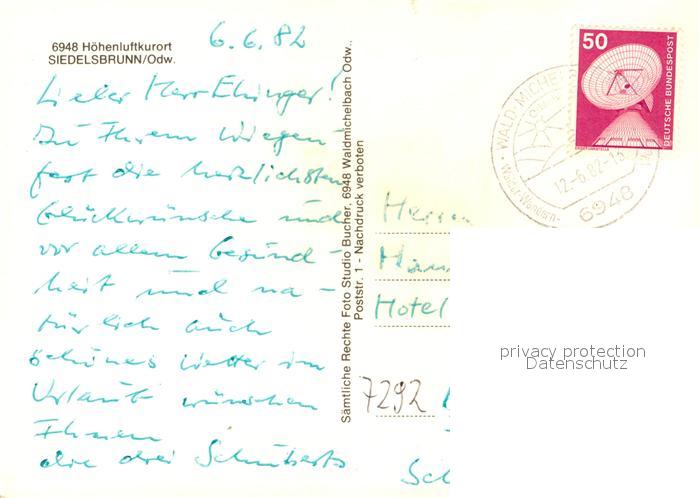 6948 Höhenluftkurort
SIEDELSBRUNN/Odw.
6.6.82
Lieber Herr Ehinger!
Zu Ihrem Wiegen-
fest die herzlichsten
Glückwünsche und
vor allem Gesund-
heit und na-
türlich auch
schönes Wetter im
Urlaub wünschen
Ihnen
die drei Schuberts
Sämtliche Rechte Foto Studio Bucher, 6948 Waldmichelbach Odw.,
Poststr. 1 - Nachdruck verboten
50
DEUTSCHE BUNDESPOST
WALD-MICHE
12.-6.82-1
6948
Herrn
Hotel
7292
Sc
privacy protection
Datenschutz